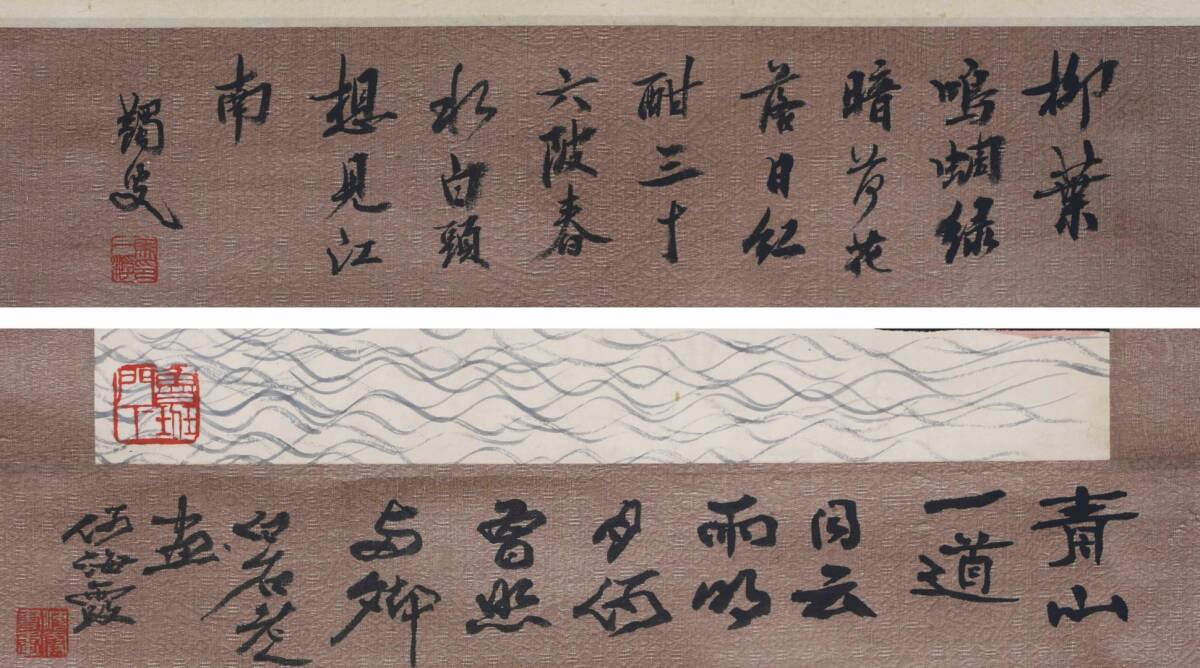 柳葉
鳴蜩緑
暗荷花
落日紅
酣三十
六陂春
水白頭
想見江
南
蠲叟
魯班
門下
青山
一道
同云
雨明
月何
曾照
白石老
畫
何海霞